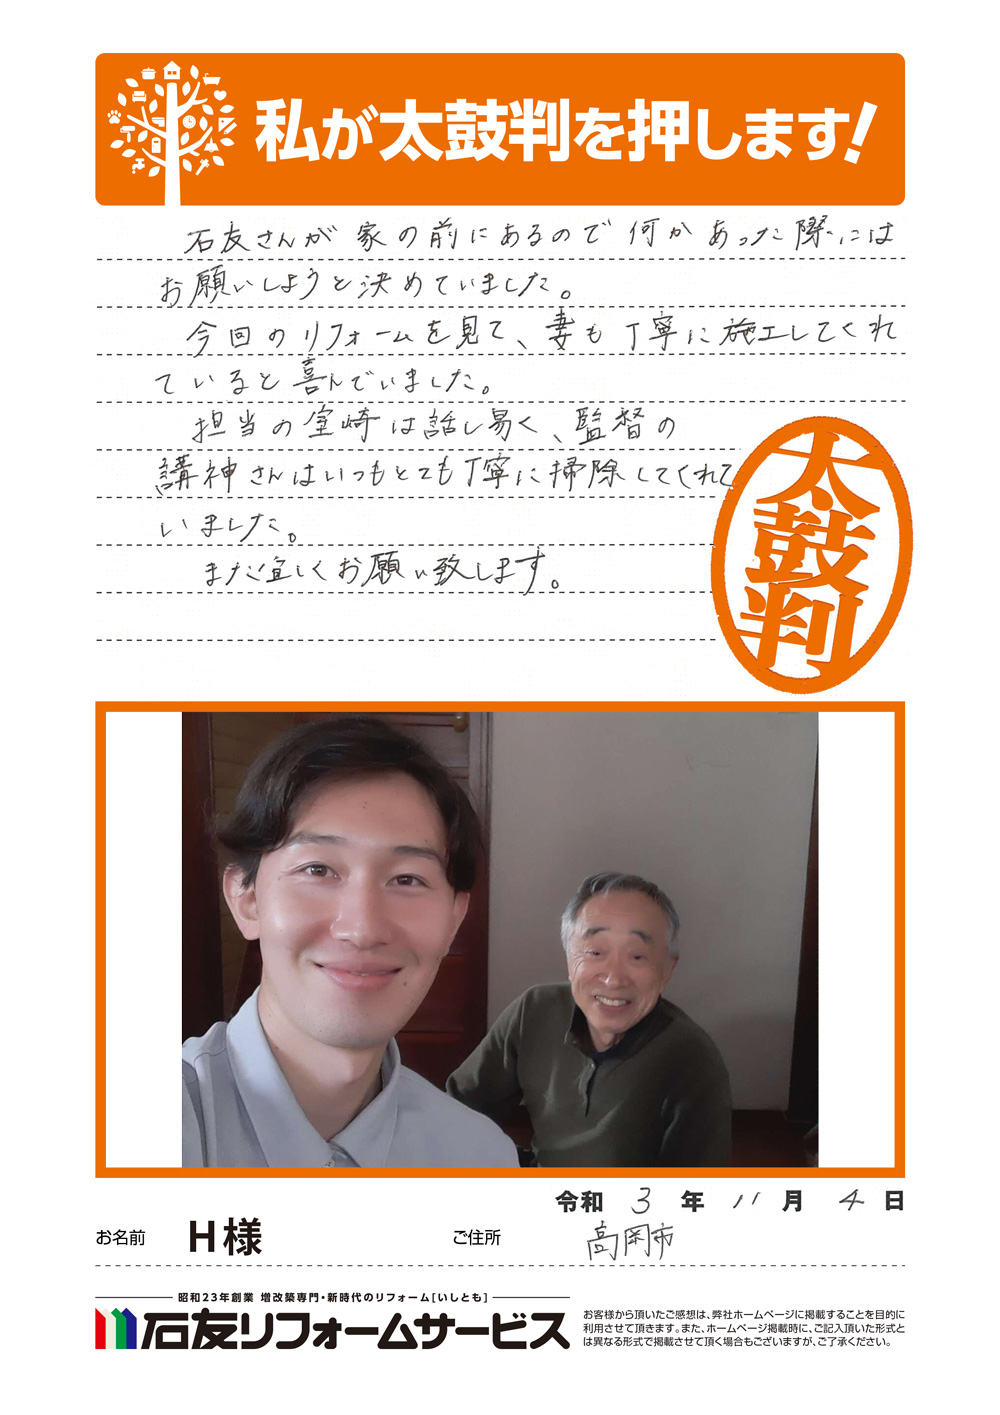 私が太鼓判を押します!
石友さんが家の前にあるので何かあった際には
お願いしようと決めていました。
今回のリフォームを見て、妻も丁寧に施工してくれ
ていると喜んでいました。
担当の室崎は話し易く、監督の
講神さんはいつもとても丁寧に掃除してくれて
いました。
また宜しくお願い致します。
太鼓判
令和 3 年 11 月 4 日
お名前 H様 ご住所 高岡市
昭和23年創業 増改築専門・新時代のリフォーム[いしとも]
石友リフォームサービス
お客様から頂いたご感想は、弊社ホームページに掲載することを目的に
利用させて頂きます。また、ホームページ掲載時に、ご記入頂いた形式と
は異なる形式で掲載させて頂く場合もございますが、ご了承ください。